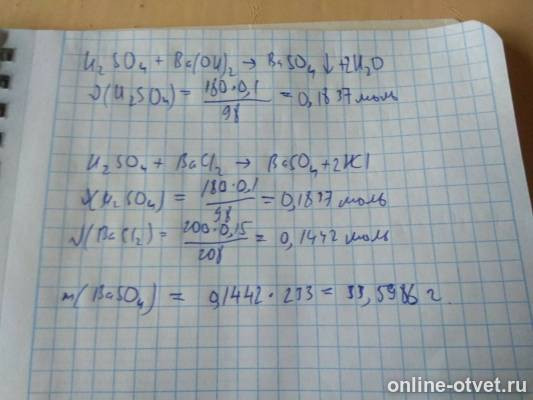 H₂SO₄ + Ba(OH)₂ → BaSO₄↓ + 2H₂O
ν(H₂SO₄) = 180·0,1/98 = 0,1837 моль
H₂SO₄ + BaCl₂ → BaSO₄ + 2HCl
ν(H₂SO₄) = 180·0,1/98 = 0,1837 моль
ν(BaCl₂) = 200·0,15/208 = 0,1442 моль
m(BaSO₄) = 0,1442·233 = 33,5986 г.
online-otvet.ru